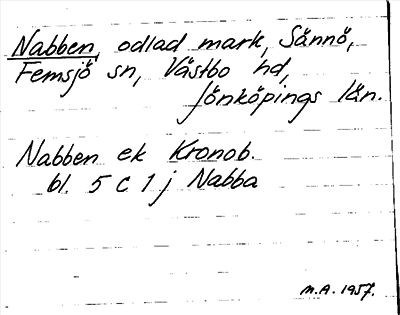 Nabben, odlad mark, Sännö,
Femsjö sn, Västbo hd,
Jönköpings län.
Nabben ek Kronob.
bl. 5 C 1 j Nabba
M.A. 1957.